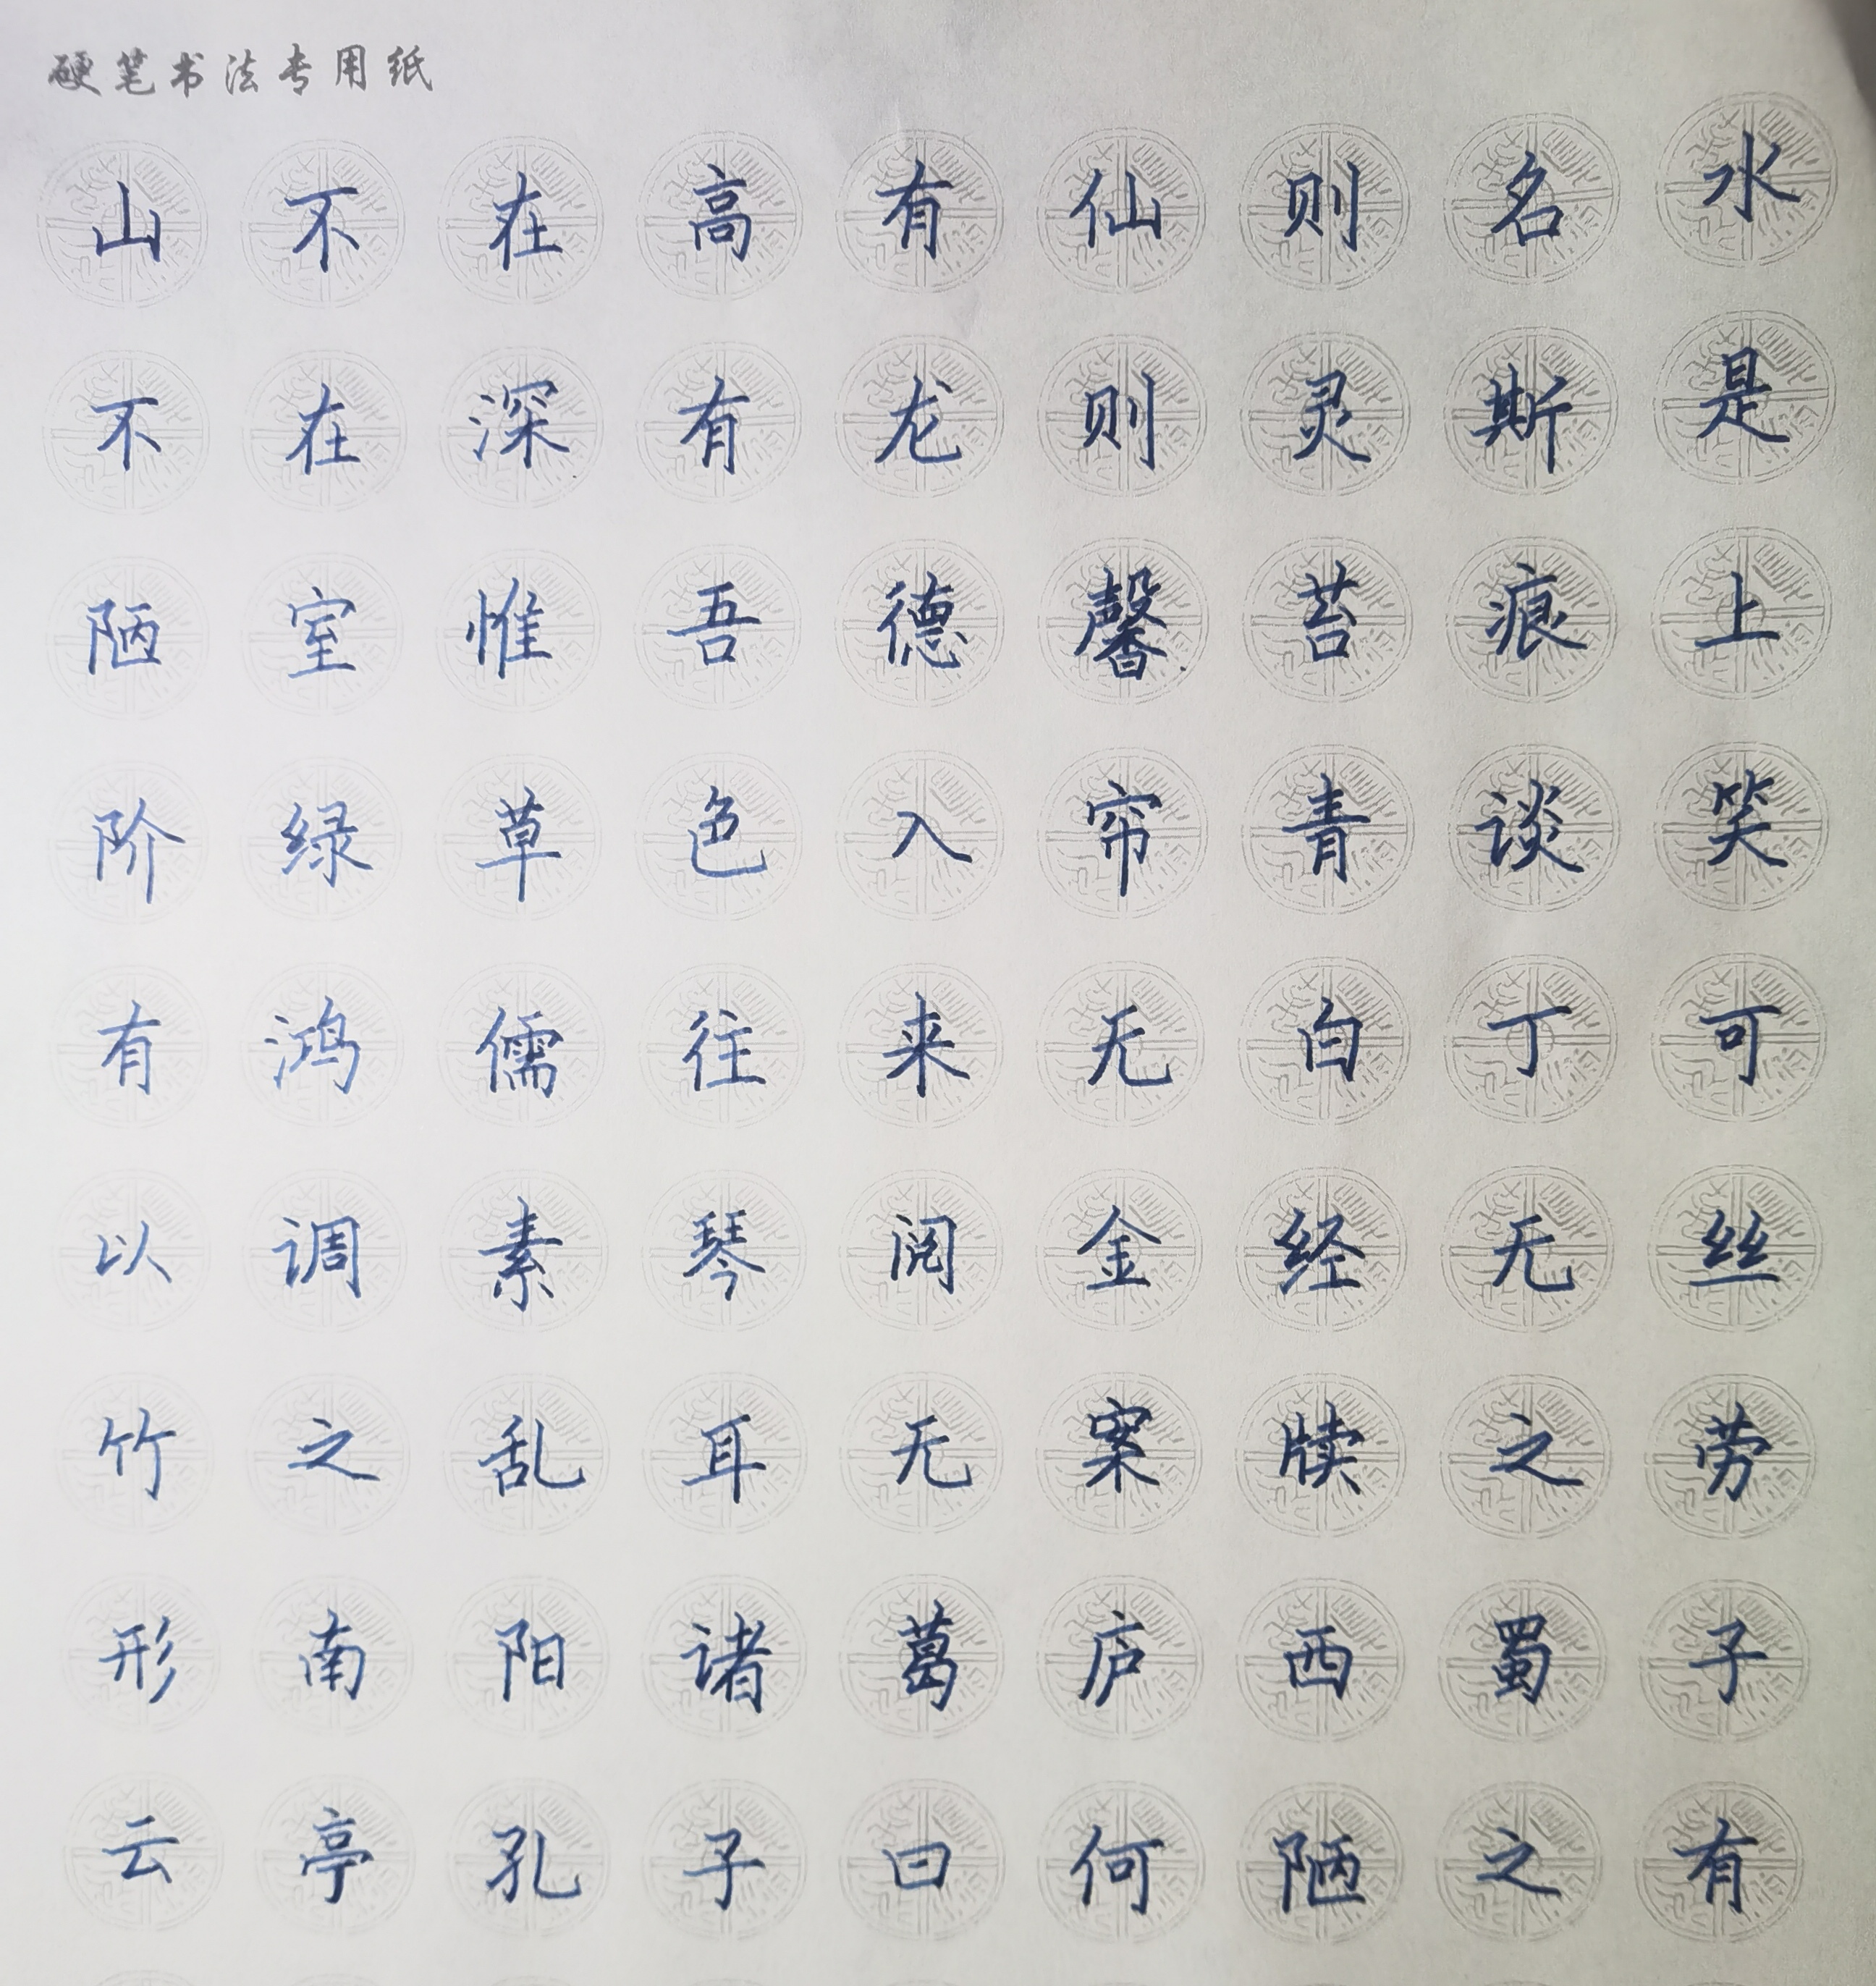 硬笔书法专用纸
山不在高有仙则名水
不在深有龙则灵斯是
陋室惟吾德馨苔痕上
阶绿草色入帘青谈笑
有鸿儒往来无白丁可
以调素琴阅金经无丝
竹之乱耳无案牍之劳
形南阳诸葛庐西蜀子
云亭孔子曰何陋之有